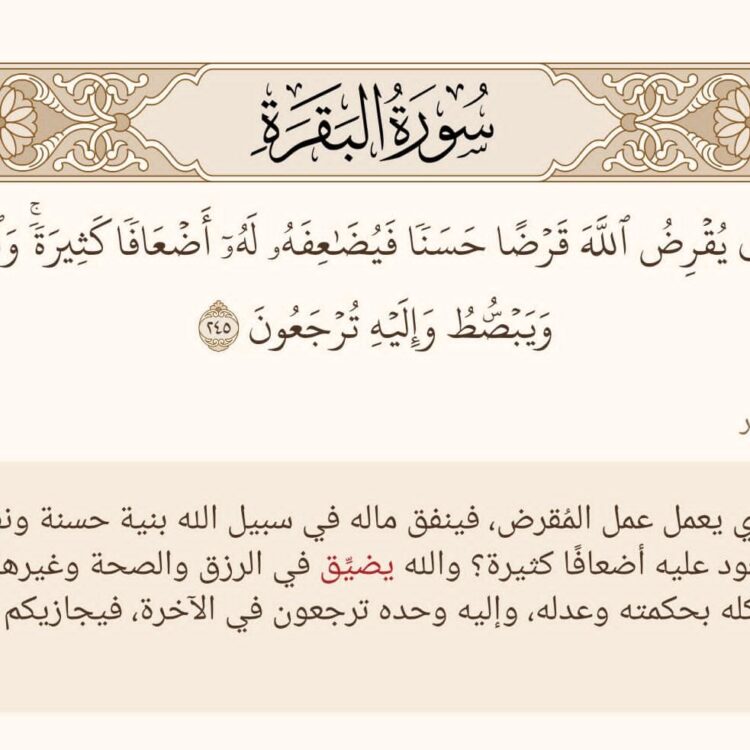 سُورَةُ البَقَرَةِ
يُقۡرِضُ ٱللَّهَ قَرۡضًا حَسَنٗا فَيُضَٰعِفَهُۥ لَهُۥٓ أَضۡعَافٗا كَثِيرَةٗۚ
وَيَبۡصُۜطُ وَإِلَيۡهِ تُرۡجَعُونَ ٢٤٥
يعمل عمل المُقرض، فينفق ماله في سبيل الله بنية حسنة
عليه أضعافًا كثيرة؟ والله يضيِّق في الرزق والصحة وغيره
بحكمته وعدله، وإليه وحده ترجعون في الآخرة، فيجازيكم